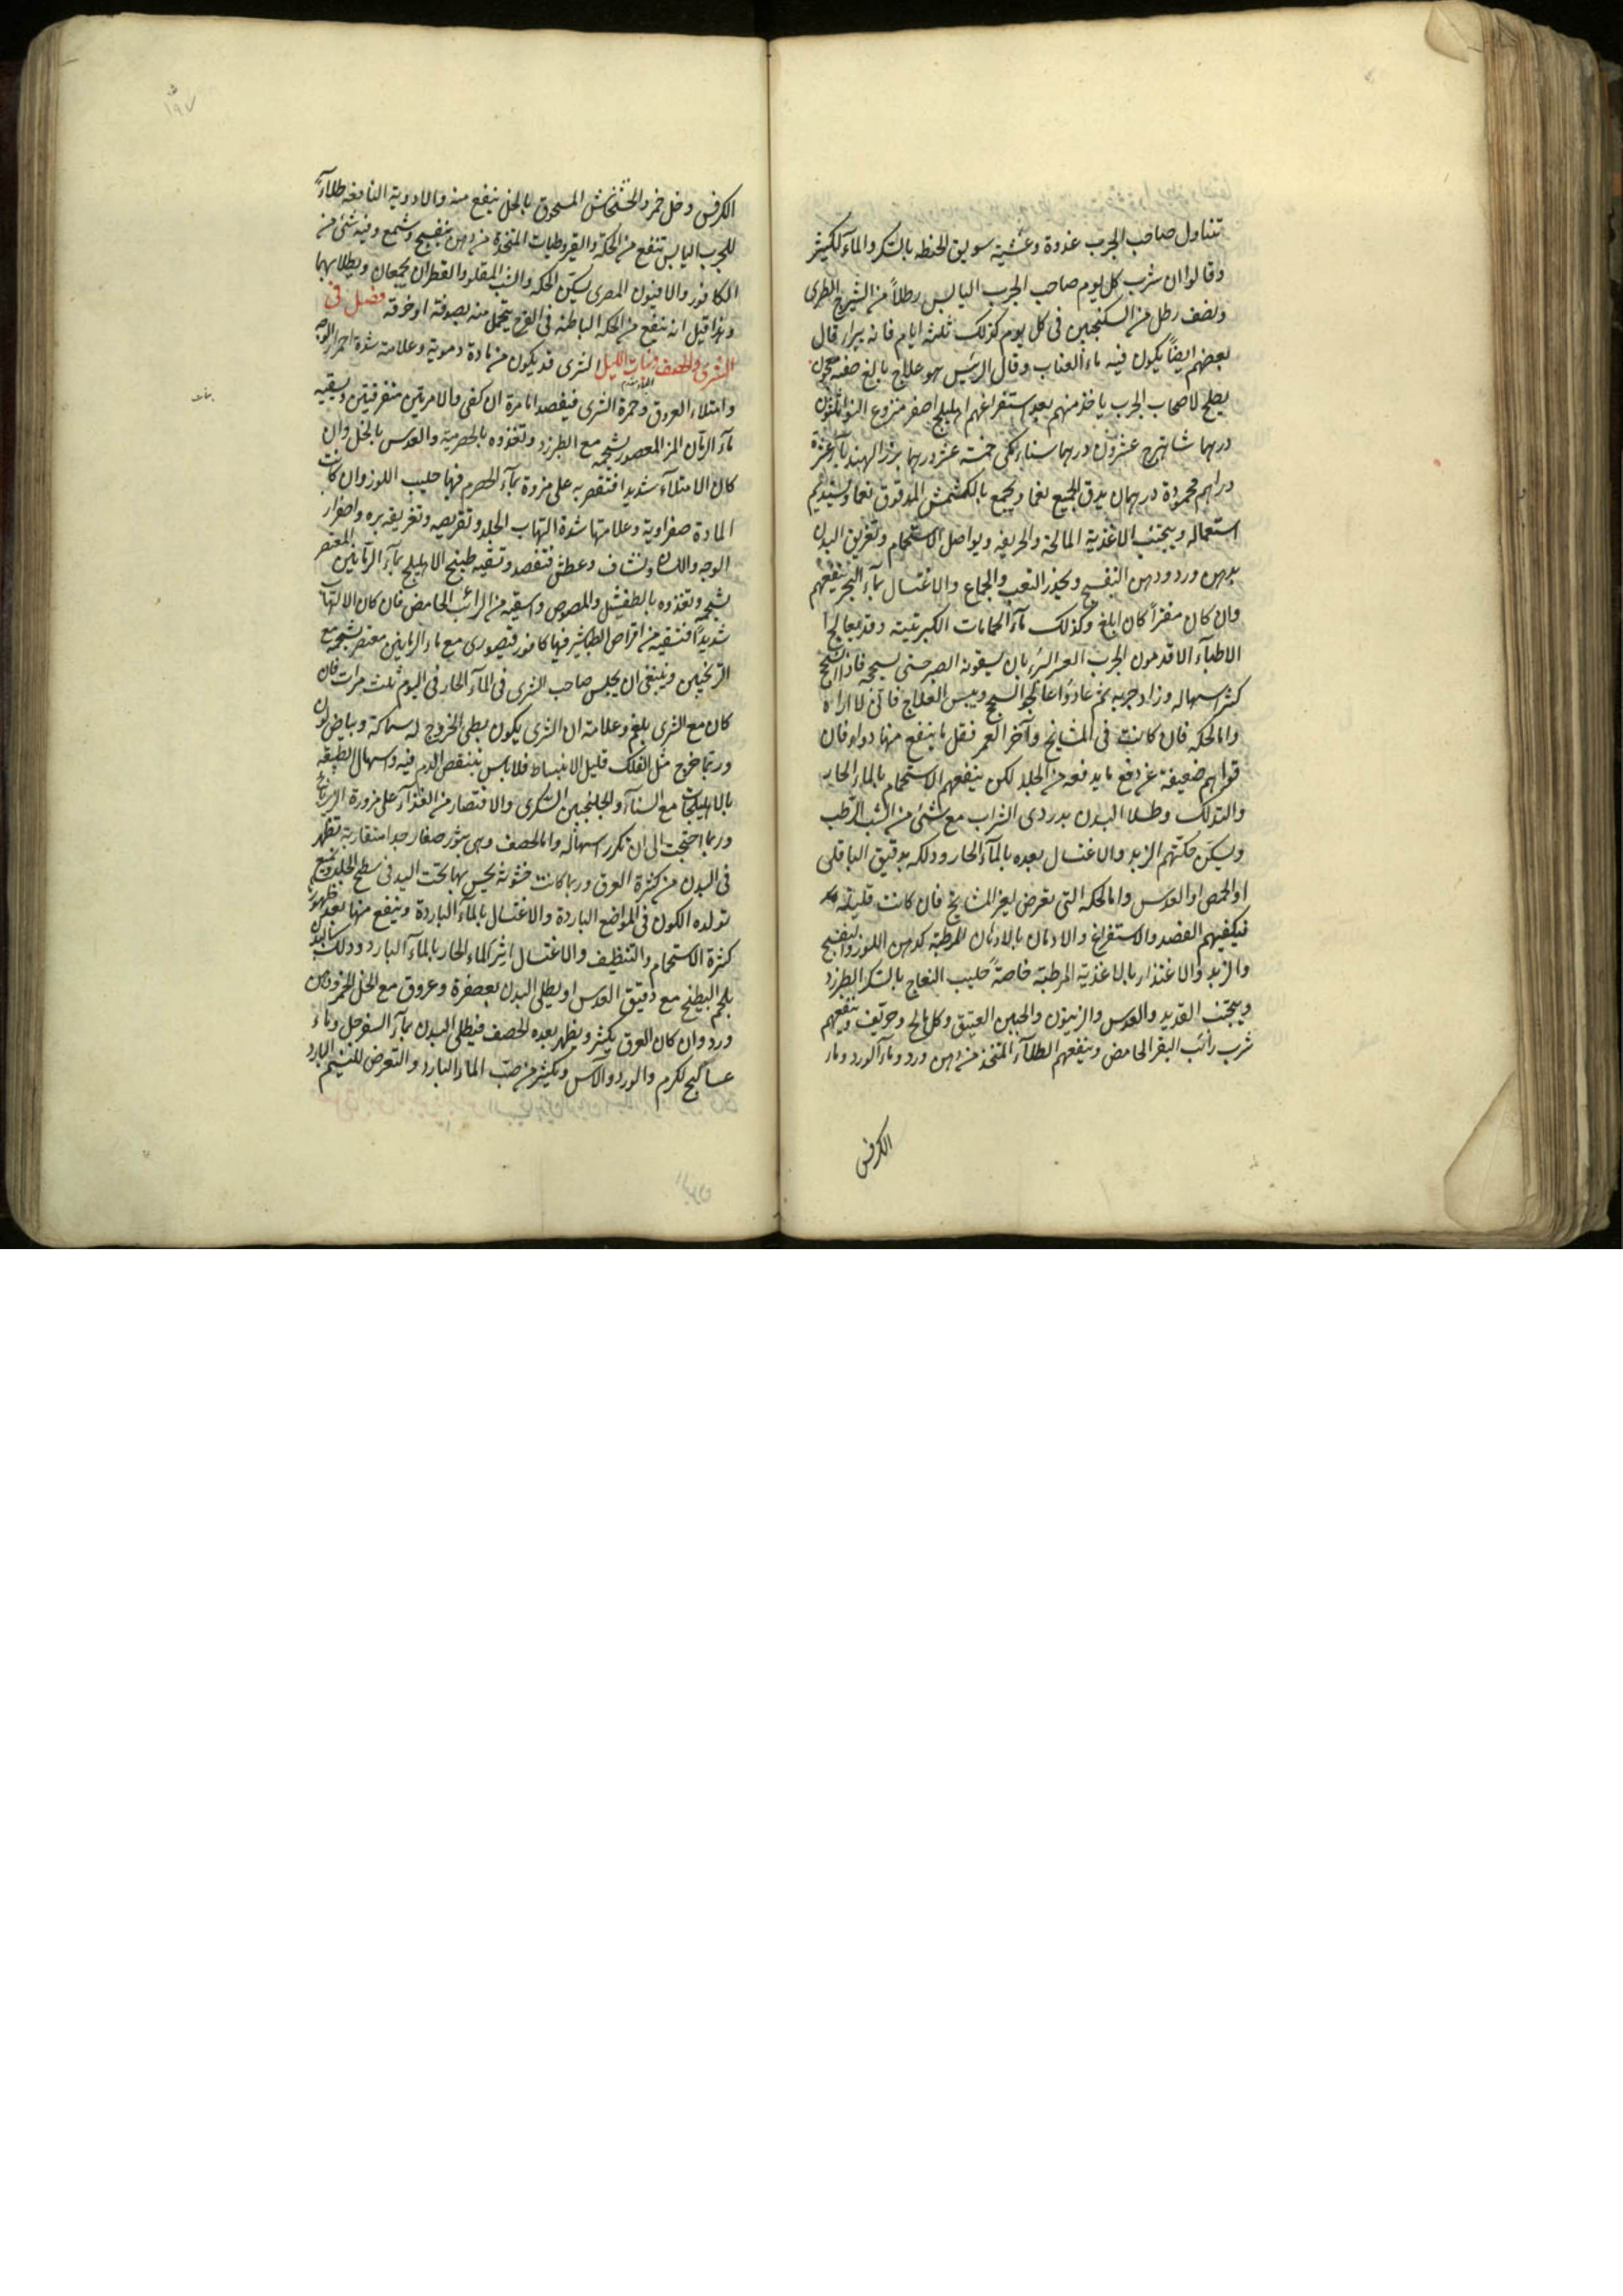 تتناول صاحب الجرب غدوة وعشية سويق الحنطه بالسكر والماء الكثير
وقالوا ان شرب كل يوم صاحب الجرب اليابس رطلاً من الشيرج الطرى
ونصف رطل من السكنجبين فى كل يوم كذلك ثلثه ايام فانه يبرا وقال
بعضهم ايضاً يكون فيه ماء العناب وقال الرئيس هو علاج بالغ صفة معجون
يصلح لاصحاب الجرب ياخذ منهم بعد استفراغهم اهليلج اصفر منزوع النوا ثلثون
درهما شاهترج عشرون درهما سناء مكى خمسة عشر درهما بزر الهندباء عشرة
دراهم محمودة درهمان يدق الجميع نعما ويجمع بالكشمش المدقوق نعما ويستديم
استعماله ويجتنب الاغذية المالحة والحريفه ويواصل الاستحمام وتغريق البدن
بدهن ورد ودهن البنفسج ويحذر التعب والجماع والاغتسال بماء البحر ينفعهم
وان كان مفتراً كان ابلغ وكذلك ماء الحمامات الكبريتية وقد يعالج
الاطباء الاقدمون الجرب العسر البرء بان يسقونه الصبر حتى يسحجه فاذا انسحج
كثر اسهاله وزاد جربه ثم عادوا عالجوا السحج وبيس العلاج فانى لا اراه
واما الحكه فان كانت فى المشايخ وآخر العمر فقل ما ينفع منها دواء فان
قواهم ضعيفة عن دفع ما يدفعه من الجلد لكن ينفعهم الاستحمام بالماء الحار
والتدلك وطلا البدن بدردى الشراب مع شئ من الشب الرطب
ويسكن حكتهم الزبد والاغتسال بعده بالماء الحار ودلكه بدقيق الباقلى
او الحمص او العدس واما الحكه التى تعرض لغير المشايخ فان كانت قليلة
فيكفيهم الفصد والاستفراغ والادمان بالادهان المرطبة كدهن اللوز والبنفسج
والزبد والاغتذاء بالاغذية المرطبة خاصةً حليب النعاج بالسكر الطبرزد
ويجتنب القديد والعدس والزيتون والجبن العتيق وكل مالح وحريف وينفعهم
شرب رائب البقر الحامض وينفعهم الطلاء المتخذ من دهن ورد وماء الورد وماء
الكرفس
١٩٧
الكرفس وخل خمر والخشخاش المسحوق بالخل ينفع منه والادوية النافعة طلاءً
للجرب اليابس تنفع من الحكة والقيروطيات المتخذة من دهن بنفسج وشمع وفيه شئ من
الكافور والافيون المصرى يسكن الحكه والشب المقلو والقطران يجمعان ويطلا بهما
وهذا قيل انه ينفع من الحكه الباطنه فى الفرج يتحمل منه بصوفة او خرقه فصل فى
الشرى والحصف وبنات الليل الشرى قد يكون من مادة دموية وعلامته شدة احمرار الوجه
بنات
وامتلاء العروق وحمرة الشرى فيفصد اما مرة ان كفى والا مرتين متفرقتين ويسقيه
ماء الرمان المز المعصور بشحمه مع الطبرزد وتغذوه بالحصرمية والعدس بالخل وان
كان الامتلاء شديدا فتقتصر به على مزورة بماء الحصرم فيها حليب اللوز وان كانت
المادة صفراوية وعلامتها شدة التهاب الجلد وتقريصه وتغريقه بره واصفرار
الوجه واللسان ونشاف وعطش فتفصد وتسقيه طبيخ الاهليلج بماء الرمانين المعتصر
بشحمه وتغذوه بالطفيشل والمصوص واسقيه من الرائب الحامض فان كان الالتهاب
شديداً فتسقيه من اقراص الطباشير فيها كافور قيصورى مع ماء الرمانين معتصر بشحمه مع
الترنجبين وينبغى ان يجلس صاحب الشرى فى الماء الحار فى اليوم ثلث مرات فان
كان مع الشرى بلغم وعلامته ان الشرى يكون بطى الخروج له سماكة وبياض لون
وربما خرج مثل الفلك قليل الانبساط فلا باس بتنقص الدم فيه واسهال الطبيعة
بالاهليلجات مع السناء والجلنجبين السكرى والاقتصار من الغذاء على مزورة الزرباج
وربما احتجت الى ان تكرر اسهاله واما الحصف وهى بثور صغار جدا متقاربة تظهر
فى البدن من كثرة العرق وربما كانت خشونة يحس بها تحت اليد فى سطح الجلد ويمنع
تولده الكون فى المواضع الباردة والاغتسال بالماء الباردة وينفع منها بعد ظهوره
كثرة الاستحمام والتنظيف والاغتسال اثر الماء الحار بالماء البارد ودلك البدن
بلحم البطيخ مع دقيق العدس او يطلى البدن بعصفرة وعروق مع الخل الخمر ودهن
ورد وان كان العرق يكثر ويظهر بعده الحصف فيطلى البدن بماء السفرجل وماء
عساليج الكرم والورد والآس ويكثر من صب الماء البارد والتعرض للنسيم البارد